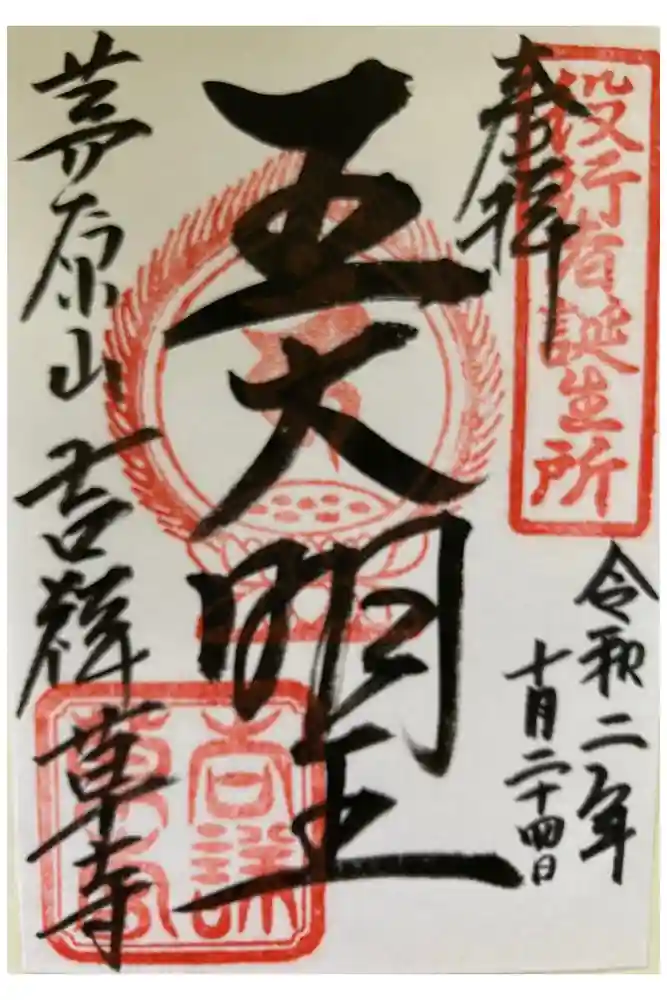 役行者誕生所
奉拝
令和二年
十月二十四日
五大明王
茅原山 吉祥草寺
吉祥草寺